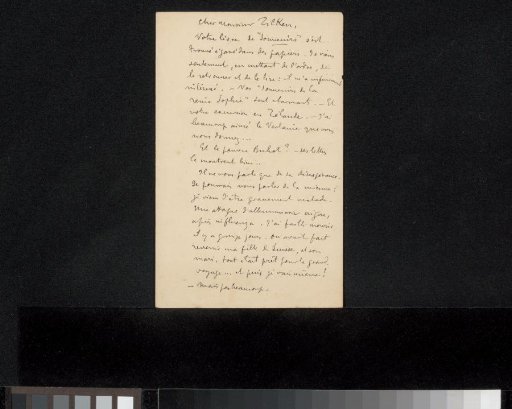 Cher monsieur Zilcken,
Votre livre de "Souvenirs" s'est
trouvé égaré dans des papiers. Je viens
seulement, en mettant de l'ordre, de
le retrouver et de le lire : il m'a infiniment
intéressé. – Vos "Souvenirs de la
reine Sophie" sont charmants. – Et
votre excursion en Zélande. – J'ai
beaucoup aimé le Verlaine que vous
nous donnez. –
Et le pauvre Buhot ? – ses lettres
le montrent bien. –
Il ne vous parle que de sa
Je pourrais vous parler de la mienne !
je viens d'être gravement malade.
Une attaque d'albuminurie aigüe,
après influenza. J'ai failli mourir
il y a quinze jours. On avait fait
revenir ma fille de Suisse, et son
mari. tout était prêt pour le grand
voyage... et puis je vais mieux !
– mais pas beaucoup. –